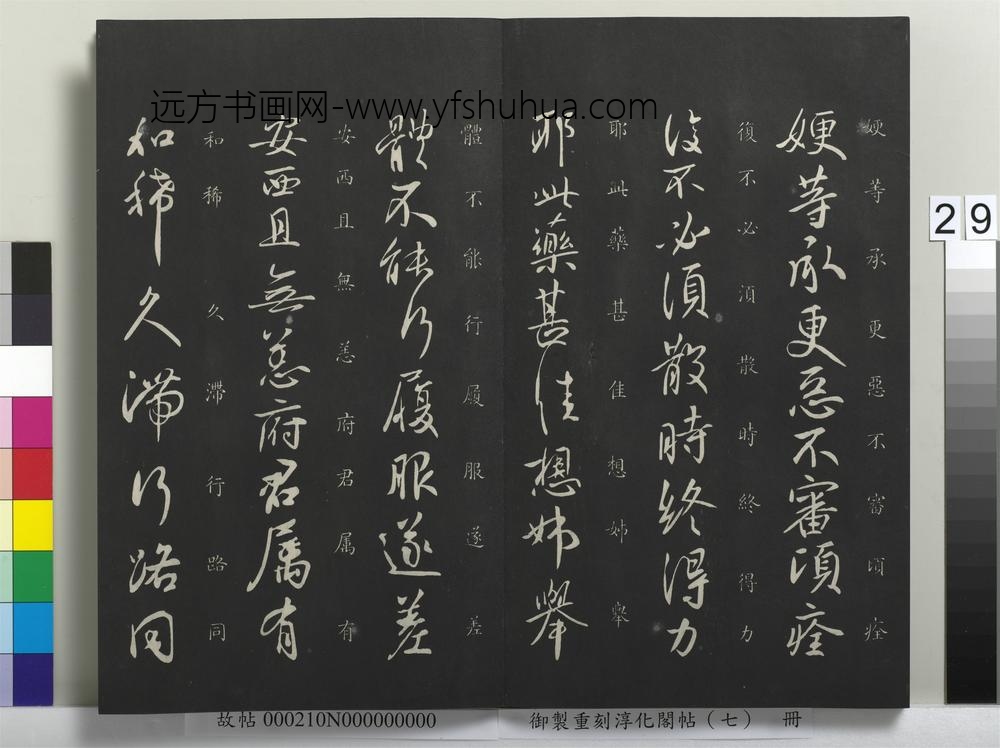 远方书画网-www.yfshuhua.com
㛐等承更惡不審頃痊
㛐等承更惡不審頃痊
復不必須散時終得力
復不必須散時終得力
耶此藥甚佳想姊舉
耶此藥甚佳想姊舉
體不能行履服遂差
體不能行履服遂差
安西且無恙府君属有
安西且無恙府君属有
和稀久滯行路同
和稀久滯行路同
29
故帖 000210N000000000
御製重刻淳化閣帖(七) 冊